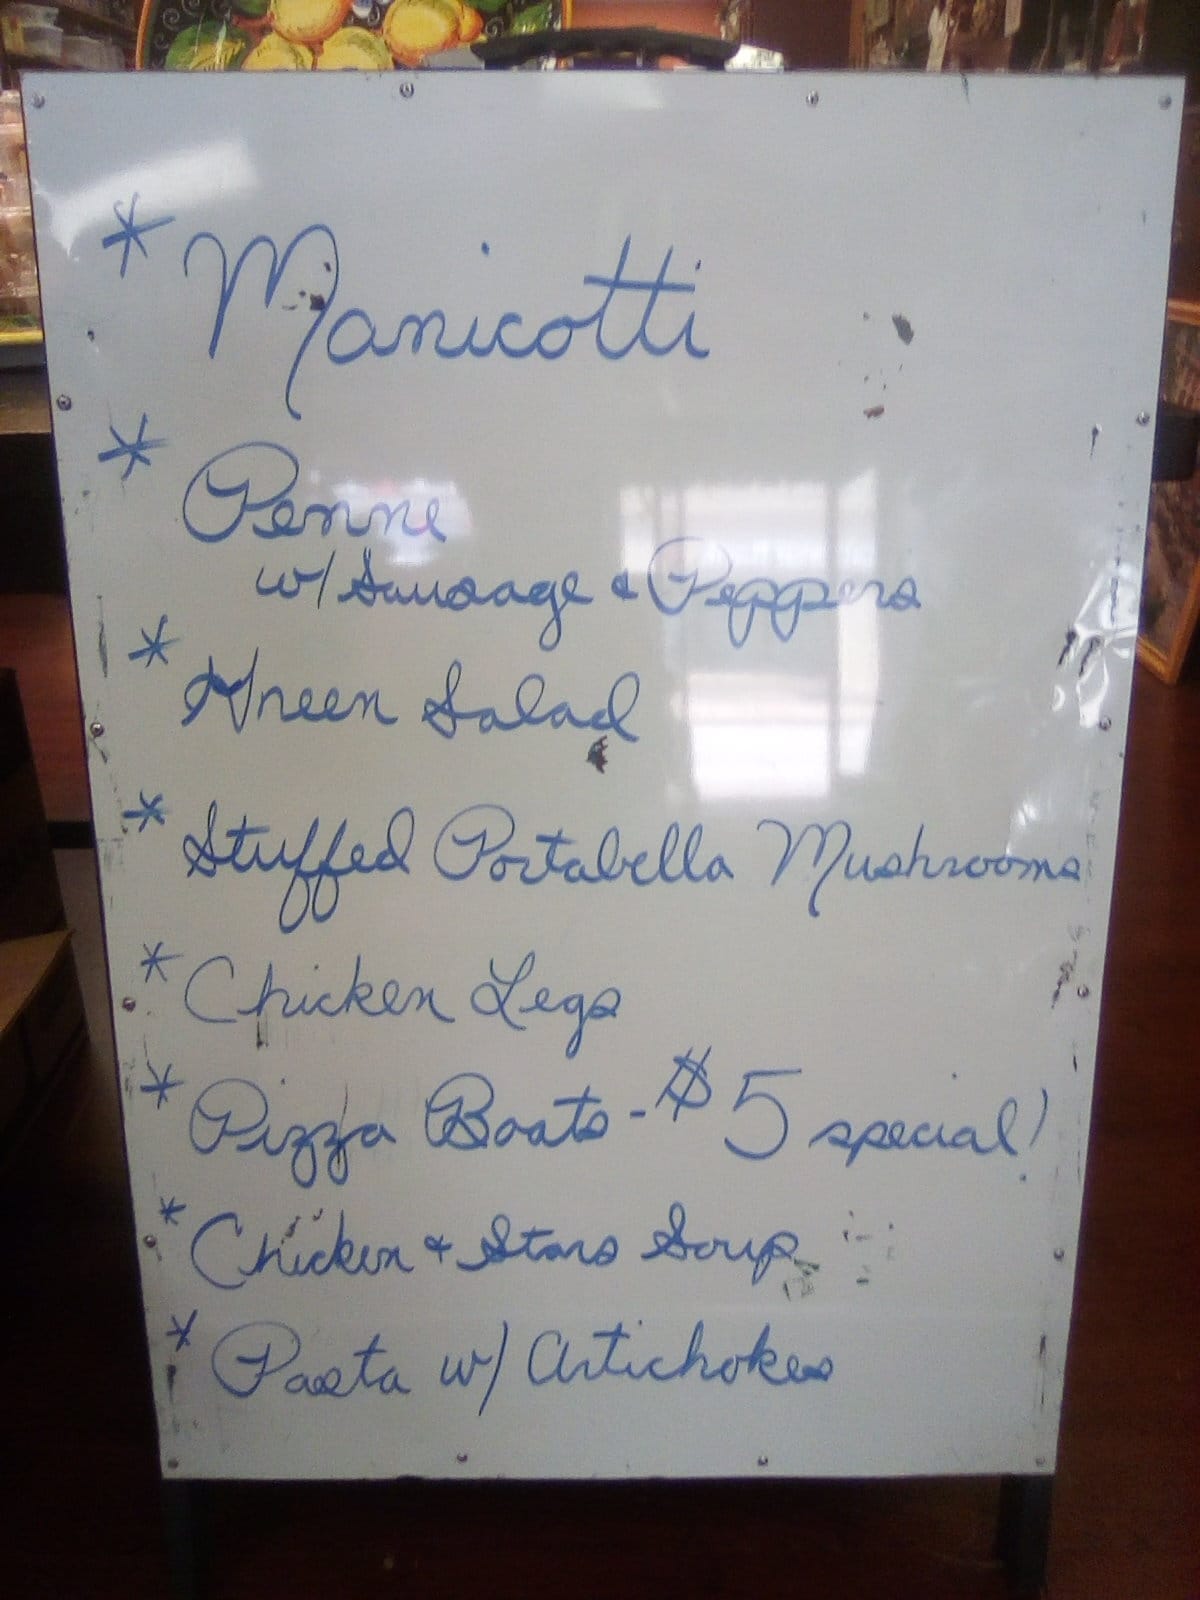 * Manicotti
* Penne
w/ Sausage & Peppers
* Green Salad
* Stuffed Portabella Mushrooms
* Chicken Legs
* Pizza Boats - $5 special!
* Chicken & Stars Soup
* Pasta w/ Artichokes